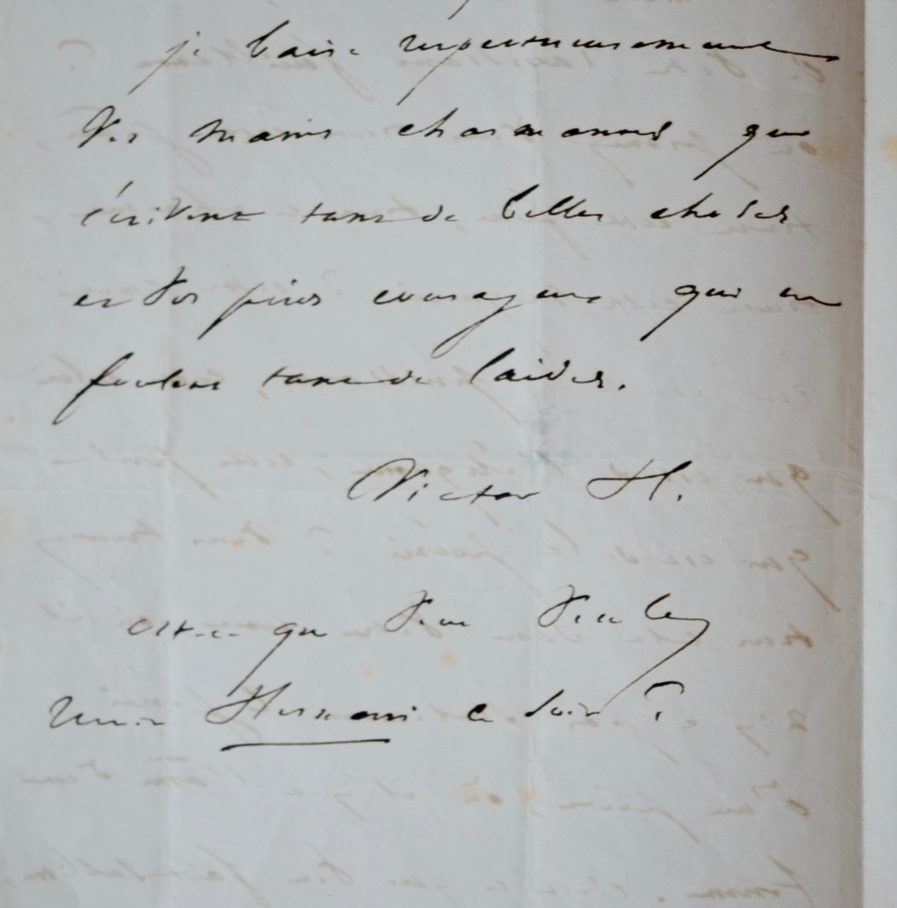 je baise respectueusement
vos mains charmantes qui
écrivent tant de belles choses
et vos pieds courageux qui en
foulent tant de laides.
Victor H.
est-ce que vous voulez
venir Hernani ce soir ?